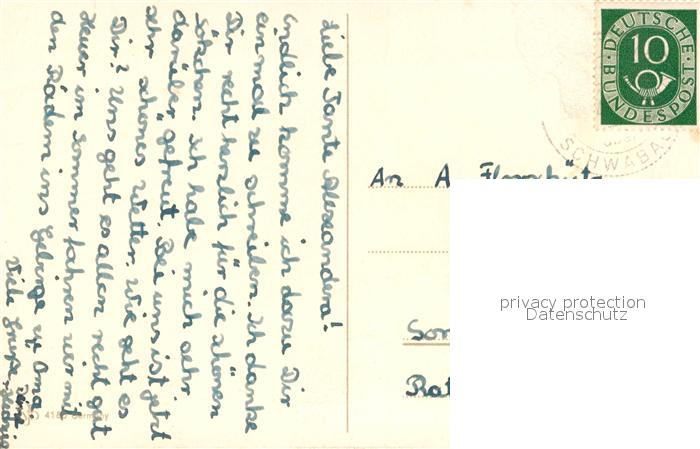 Liebe Tante Alexandera!
Endlich komme ich dazu Dir
einmal zu schreiben. Ich danke
Dir recht herzlich für die schönen
Söckchen. Ich habe mich sehr
darüber gefreut. Bei uns ist jetzt
sehr schönes Wetter. Wie geht es
Dir? Uns geht es allen recht gut
Heuer im Sommer fahren wir mit
den Rädern ins Gebirge
Viele Grüße
An A. 
Son
Rat
DEUTSCHE
BUNDESPOST
10
SCHWABAC
privacy protection
Datenschutz
4180 Germany